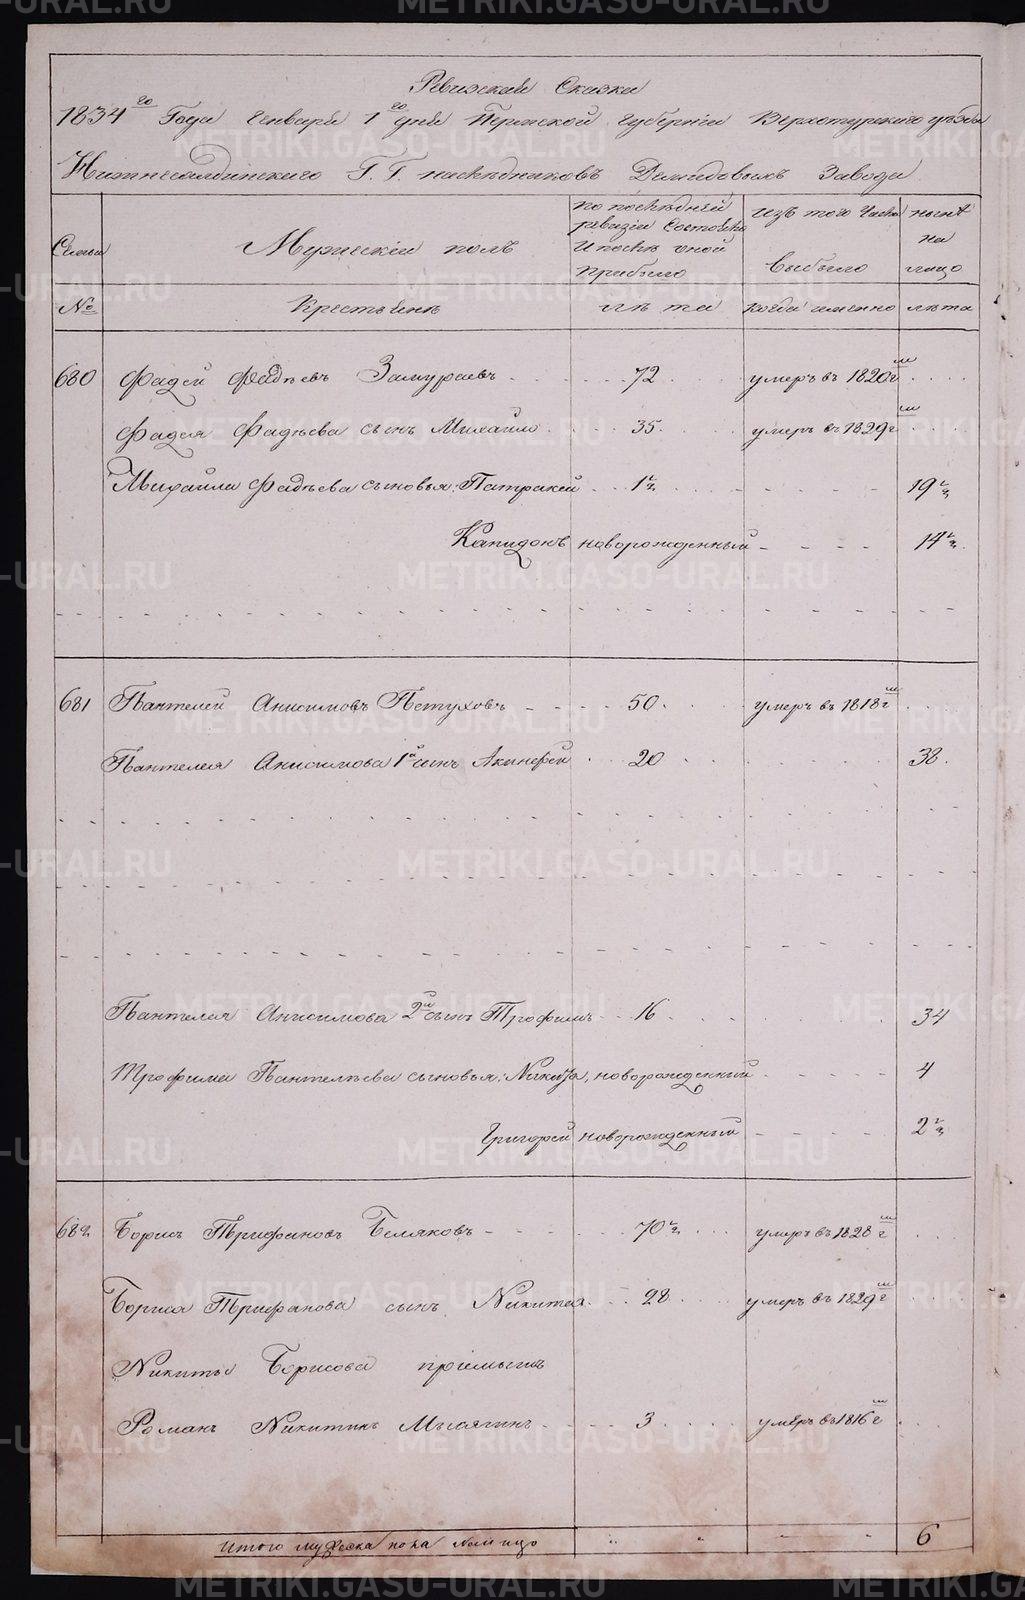 Ревизская Сказка
1834го Года Генваря 1го дня Пермской Губернiи Верхотурского уезда
Нижнесалдинского Г. Г. наследниковъ Демидовыхъ Завода
Семьи
Мужескiй полъ
по последней ревизiи Состояло и после оной прибыло
изъ того Числа выбыло
ныне на лицо
№
Крестьяне
лета
когда именно
лета
680 Фадей Фадеевъ Замураевъ 72 умеръ въ 1820мг
Фадея Фадеева сынъ Михайло 35 умеръ въ 1829мг
Михайла Фадеева сыновья: Патракей 1½ 19½
Капидонъ новорожденный 14½
681 Пантелей Анисимовъ Петуховъ 50 умеръ въ 1818мг
Пантелея Анисимова 1й сынъ Акинфей 20 38
Пантелея Анисимова 2й сынъ Трофимъ 16 34
Трофима Пантелеева сыновья: Никита, новорожденный 4
Григорей новорожденный 2½
682 Борисъ Трифановъ Беляковъ 70½ умеръ въ 1828мг
Бориса Трифанова сынъ Никита 28 умеръ въ 1829мг
Никиты Борисова прiемышъ
Романъ Никитинъ 3 умеръ въ 1816мг
Итого мужеска пола налицо " " 6
METRIKI.GASO-URAL.RU